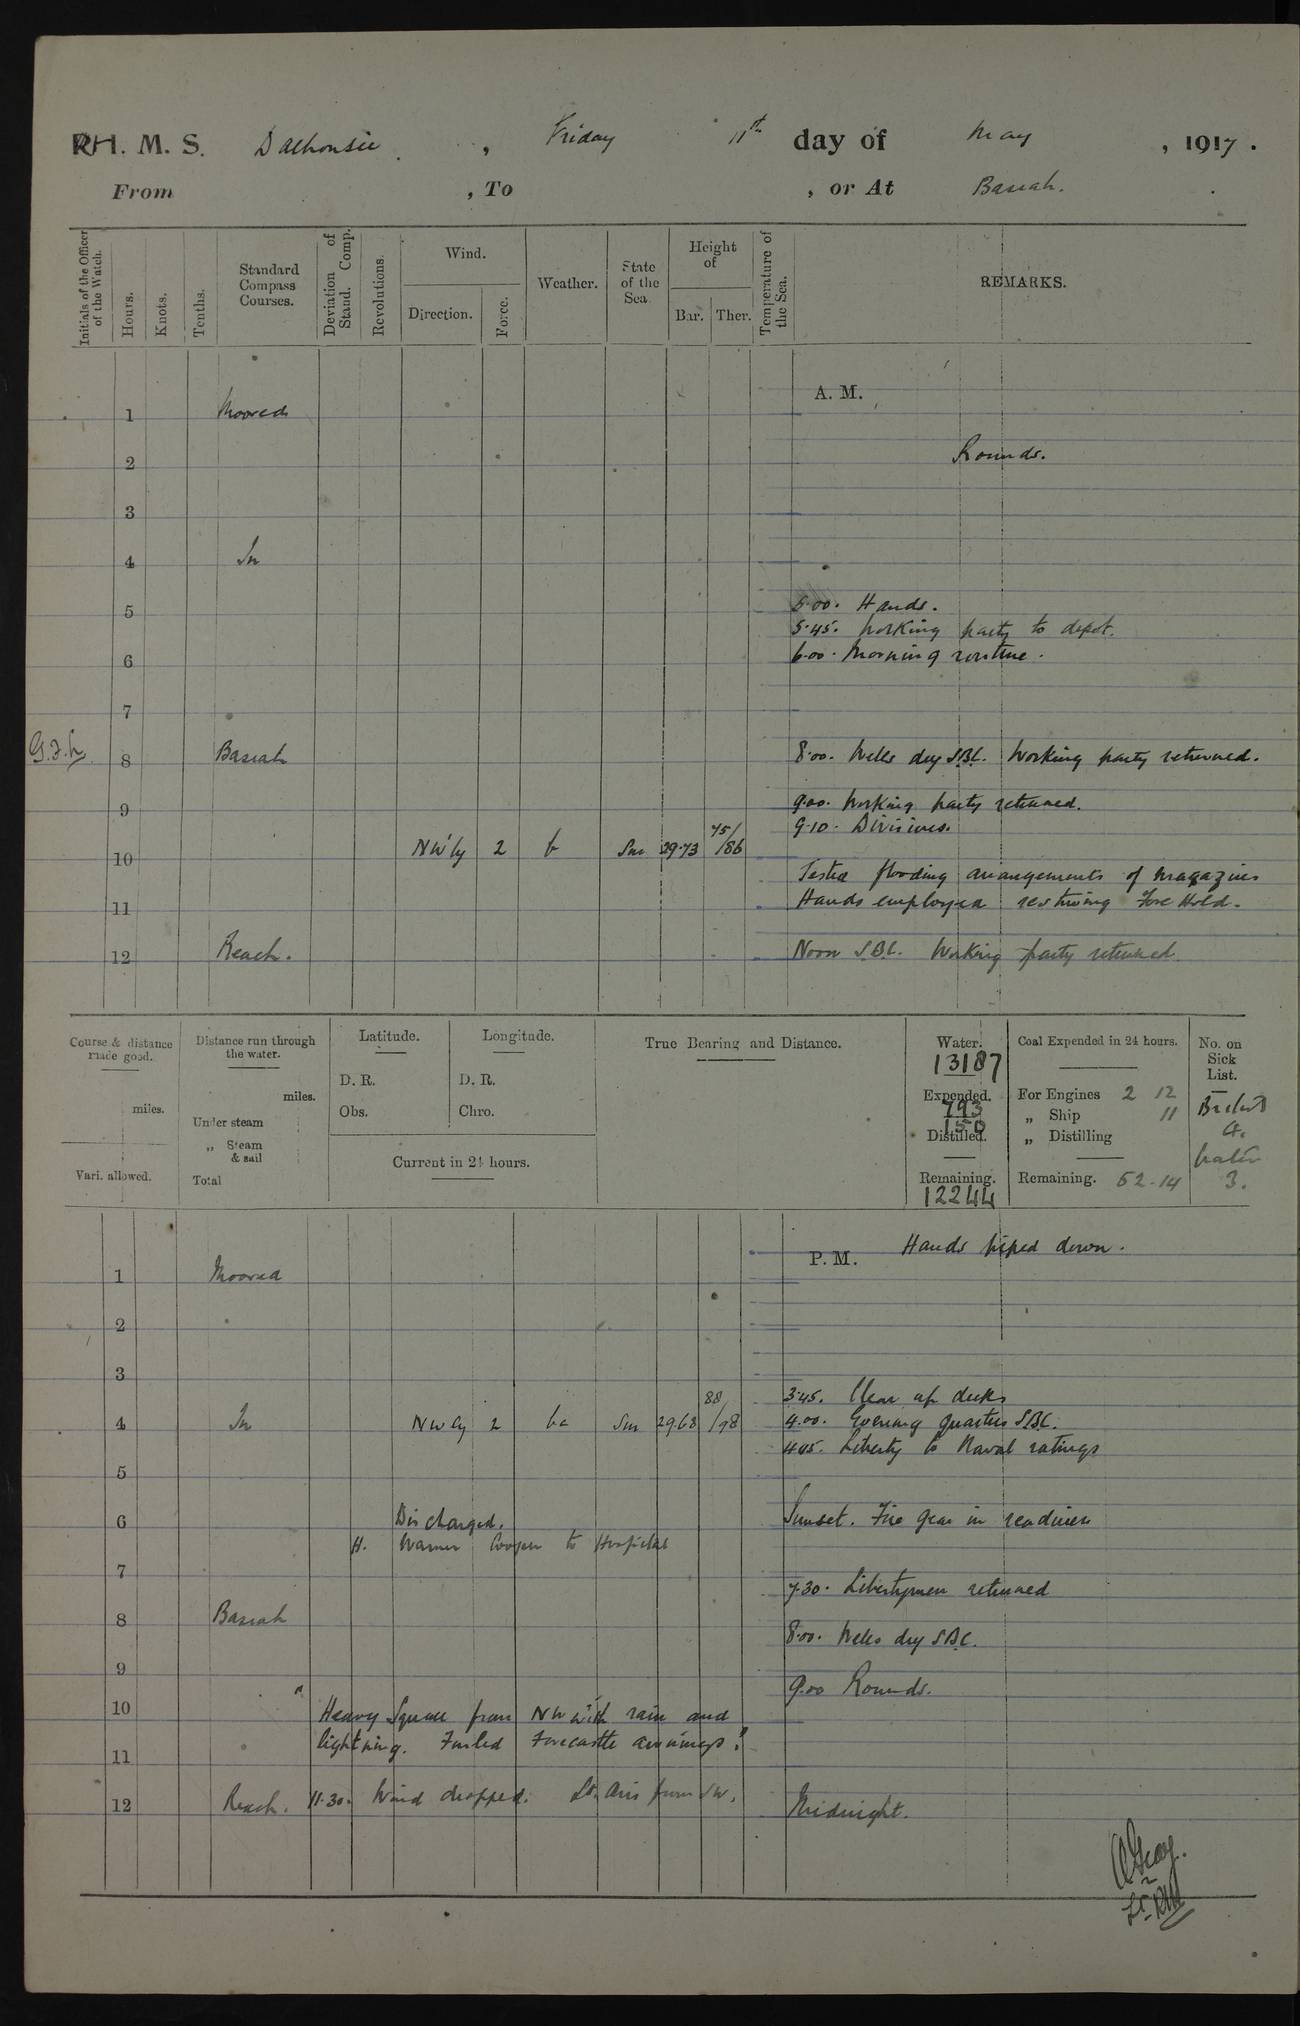 R.I.M.S. Dalhousie, Friday 11th day of May, 1917.
From , To , or At Basrah.
Initials of the Officer of the Watch.
Hours.
Knots.
Tenths.
Standard Compass Courses.
Deviation of Stand. Comp.
Revolutions.
Wind.
Direction.
Force.
Weather.
State of the Sea.
Height of
Bar.
Ther.
Temperature of the Sea.
REMARKS.
A. M.
1 Moored
Rounds.
2
3
4 In
5.00. Hands.
5
5.45. Working party to depot.
6.00. Morning routine.
6
7
8 Basrah 8.00. Wells dry S.B.C. Working party returned.
9 9.00. Working party returned.
9.10. Divisions.
10 NW'ly 2 b Sm 29.73 75/86
Tested flooding arrangements of magazines
11 Hands employed restowing Fore Hold.
12 Reach. Noon S.B.C. Working party returned.
Course & distance made good.
miles.
Vari. allowed.
Distance run through the water.
miles.
Under steam
„ Steam & sail
Total
Latitude.
D. R.
Obs.
Longitude.
D. R.
Chro.
Current in 24 hours.
True Bearing and Distance.
Water.
13187
Expended.
793
150
Distilled.
Remaining.
12244
Coal Expended in 24 hours.
For Engines 2 12
„ Ship 11
„ Distilling
Remaining. 52-14
No. on Sick List.
3.
P. M. Hands piped down.
1 Moored
2
3
3.45. Clear up decks
4 In NW'ly 2 bc Sm 29.63 88/98 4.00. Evening quarters S.B.C.
4.45. Liberty to Naval ratings
5
6 Discharged. Sunset. Fire gear in readiness
H. Warner Cooper to Hospital
7
7.30. Libertymen returned
8 Basrah
8.00. Wells dry S.B.C.
9
9.00 Rounds.
10 "Heavy Squall from NW with rain and
lightning. Furled Forecastle awnings."
11
12 Reach. 11.30. Wind dropped. Lt. Airs from SW. Midnight.
Lt. RIM